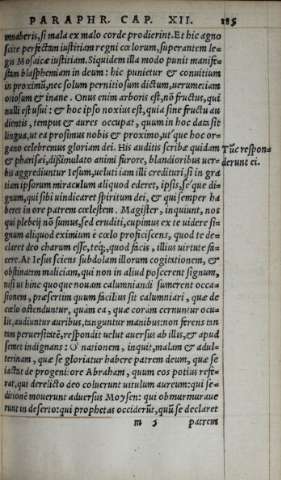 PARAPHR. CAP. XII. 185
munaberis, si mala ex malo corde prodierint. Et hic agno
scite perfectam iustitiam regni cœlorum, superantem le-
gis Mosaicæ iustitiam. Siquidem illa modo punit manife-
stam blasphemiam in deum: hic punietur & conuitium
in proximū, nec solum pernitiosum dictum, uerumetiam
otiosum & inane. Onus enim arboris est, nō fructus, qui
nulli est usui: & hoc ipso noxius est, quia sine fructu au
dientis, tempus & aures occupat, quum in hoc data sit
lingua, ut ea prosimus nobis & proximo, utq́ue hoc or-
gano celebremus gloriam dei. His auditis scribæ quidam
& pharisei, dissimulato animi furore, blandioribus uer-
bis aggrediuntur Iesum, ueluti iam illi credituri, si in gra
tiam ipsorum miraculum aliquod ederet, ipsis, seq́ue di-
gnum, qui sibi uindicaret spiritum dei, & qui semper ha
beret in ore patrem cœlestem. Magister, inquiunt, nos
qui plebeij nō sumus, sed eruditi, cupimus ex te uidere si-
gnum aliquod eximium è cœlo proficiscens, quod te de-
claret deo charum esse, teq́, quod facis, illius uirtute fa-
cere. At Iesus sciens subdolam illorum cogitationem, &
obstinatam maliciam, qui non in aliud poscerent signum,
nisi ut hinc quoque nouam calumniandi sumerent occa-
sionem, præsertim quum facilius sit calumniari, quæ de
cœlo ostenduntur, quàm ea, quæ coràm cernuntur ocu-
lis, audiuntur auribus, tanguntur manibus: non ferens tan
tam peruersitatē, respondit uelut auersus ab illis, & apud
semet indignans: O nationem, inquit, malam & adul-
terinam, quæ se gloriatur habere patrem deum, quæ se
iactat de progeniore Abraham, quum eos potius refe-
rat, qui derelicto deo coluerunt uitulum aureum: qui se-
ditionē mouerunt aduersus Moysen: qui obmurmuraue
runt in deserto: qui prophetas occiderūt, quū se declaret
m 5 patrem
Tūc respon-
derunt ei.